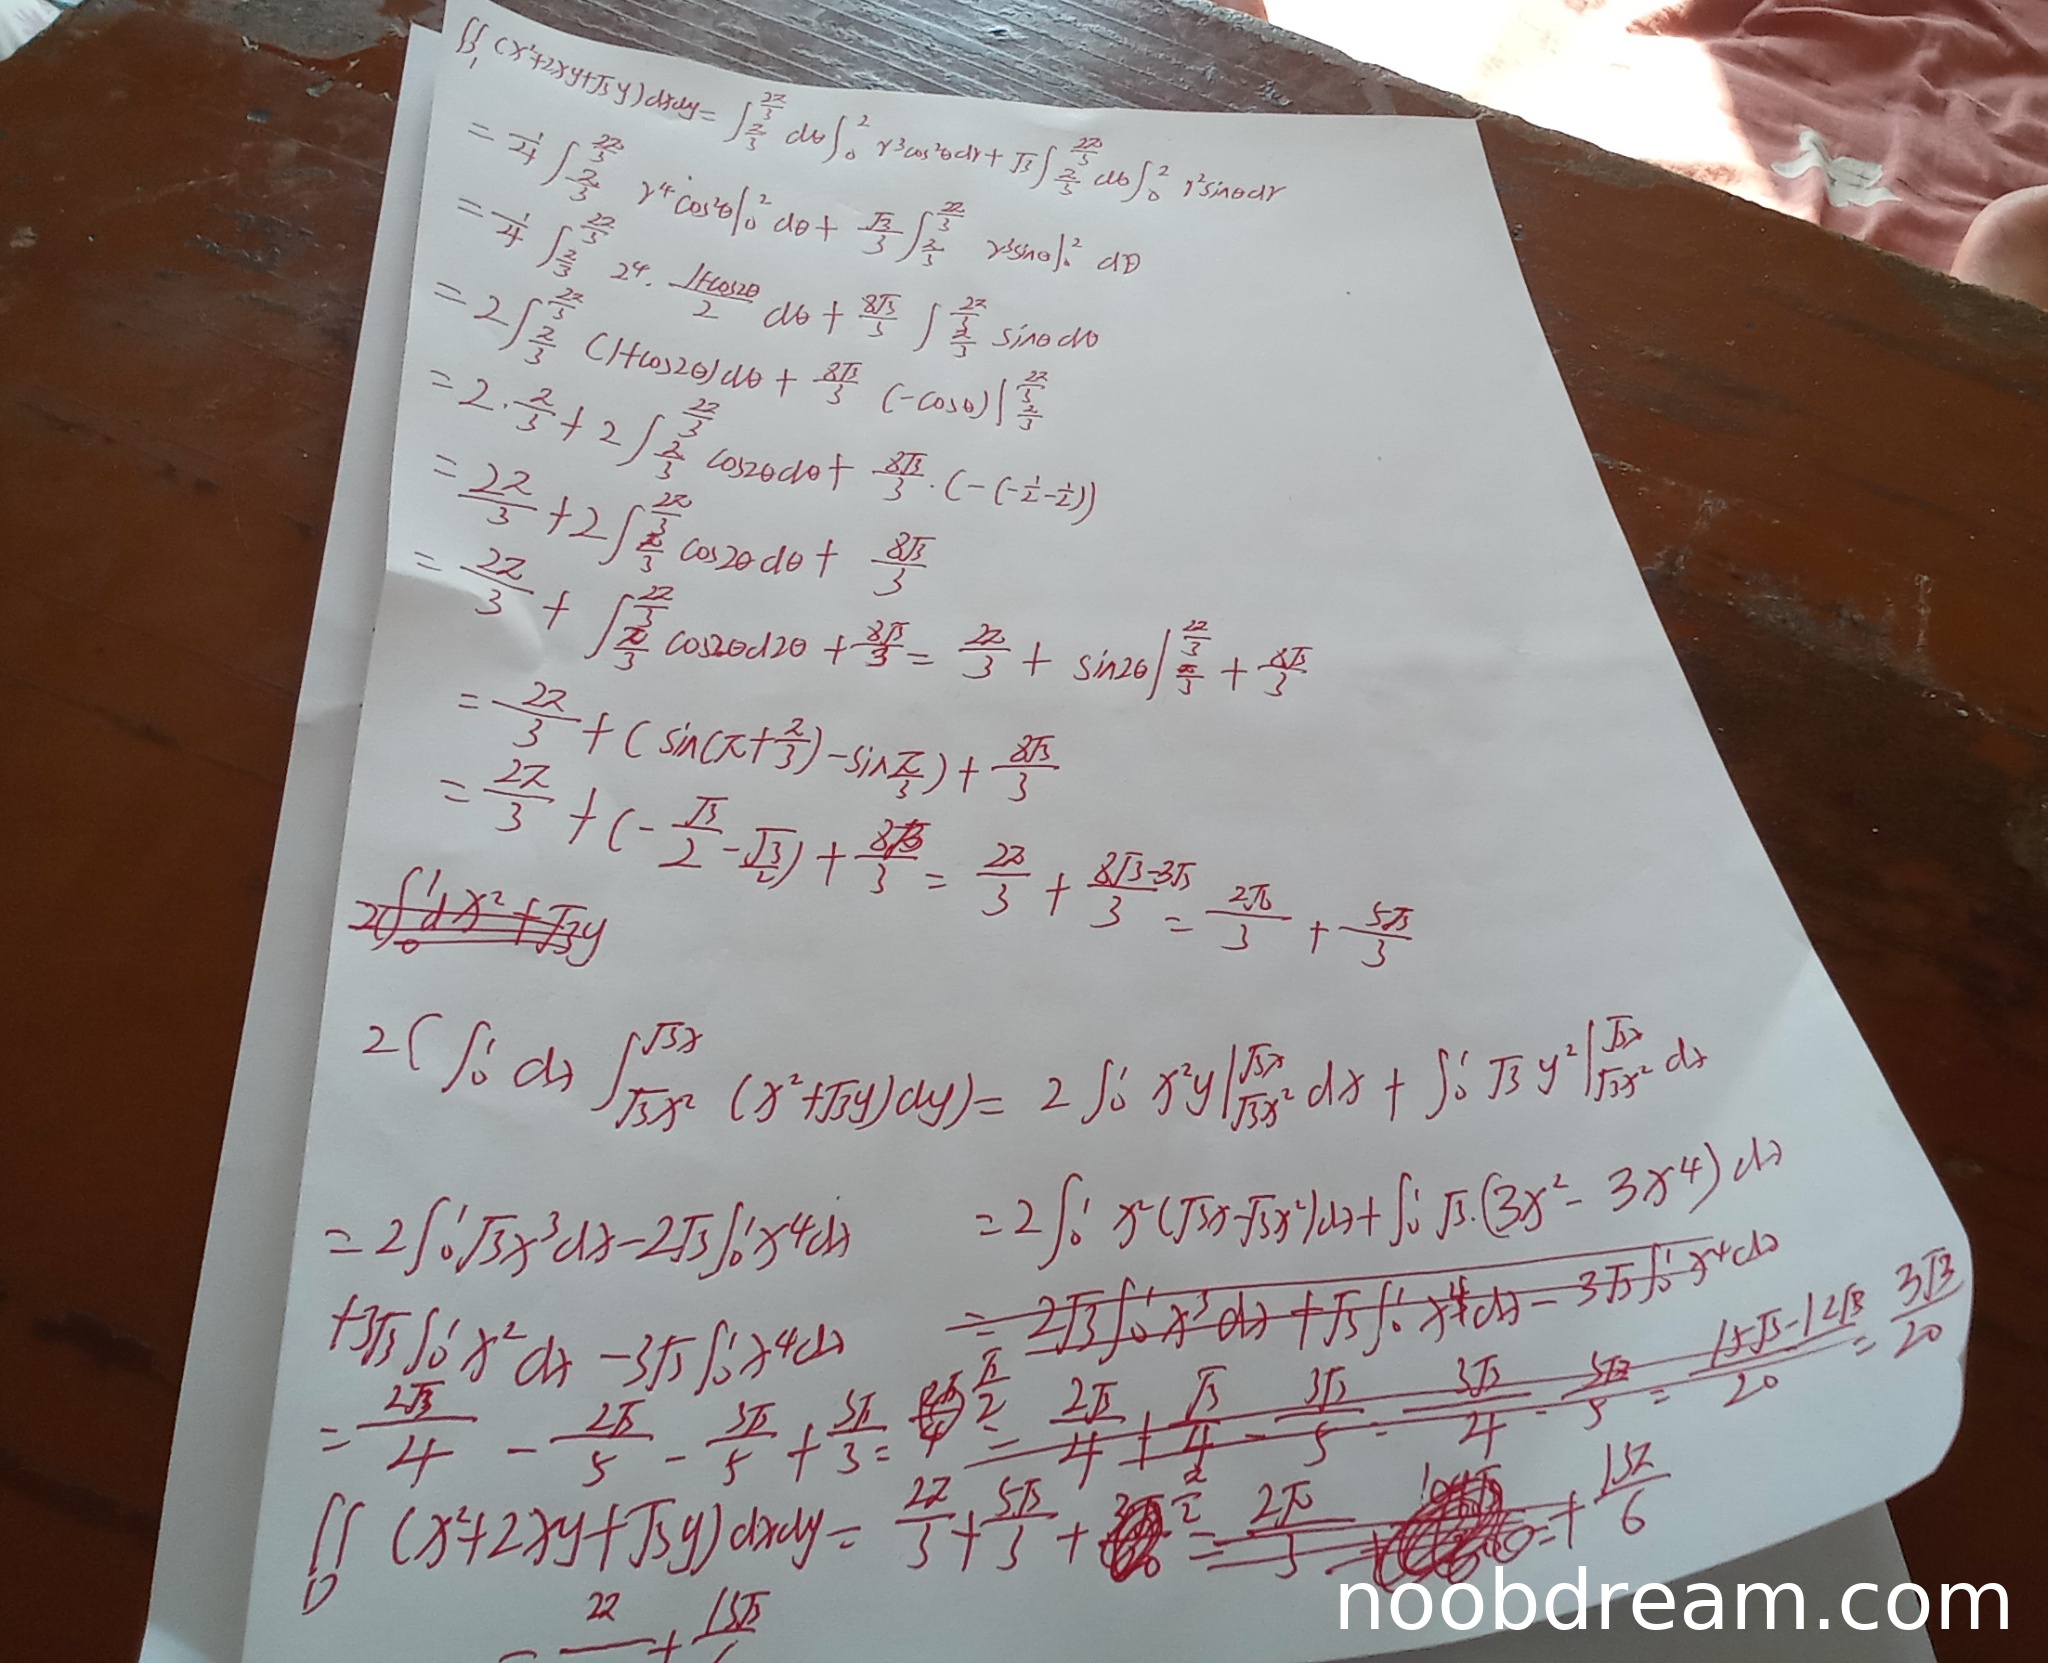 ∬₁ (x²+2xy+√3y)dxdy = ∫_{π/3}^{2π/3} dθ ∫_0^2 r³cos²θdr + √3 ∫_{π/3}^{2π/3} dθ ∫_0^2 r²sinθdr
= 1/4 ∫_{π/3}^{2π/3} r⁴cos²θ|_0^2 dθ + √3/3 ∫_{π/3}^{2π/3} r³sinθ|_0^2 dθ
= 1/4 ∫_{π/3}^{2π/3} 2⁴· (1+cos2θ)/2 dθ + 8√3/3 ∫_{π/3}^{2π/3} sinθdθ
= 2∫_{π/3}^{2π/3} (1+cos2θ)dθ + 8√3/3 (-cosθ)|_{π/3}^{2π/3}
= 2·π/3 + 2∫_{π/3}^{2π/3} cos2θdθ + 8√3/3·(-(-1/2-1/2))
= 2π/3 + 2∫_{π/3}^{2π/3} cos2θdθ + 8√3/3
= 2π/3 + ∫_{π/3}^{2π/3} cos2θd2θ + 8√3/3 = 2π/3 + sin2θ|_{π/3}^{2π/3} + 8√3/3
= 2π/3 + (sin(π+π/3) - sin π/3) + 8√3/3
= 2π/3 + (-√3/2 - √3/2) + 8√3/3 = 2π/3 + (8√3-3√3)/3 = 2π/3 + 5√3/3
2(∫_0^1 dx ∫_{√3x²}^{√3x} (x²+√3y)dy) = 2∫_0^1 x²y|_{√3x²}^{√3x} dx + ∫_0^1 √3y²|_{√3x²}^{√3x} dx
= 2∫_0^1 x²(√3x-√3x²)dx + ∫_0^1 √3·(3x²-3x⁴)dx
= 2∫_0^1 √3x³dx - 2√3∫_0^1 x⁴dx
+3√3∫_0^1 x²dx - 3√3∫_0^1 x⁴dx
= 2√3/4 - 2√3/5 - 3√3/5 + 3√3/3 = √3/2
∬_D (x²+2xy+√3y)dxdy = 2π/3 + 5√3/3 +
noobdream.com